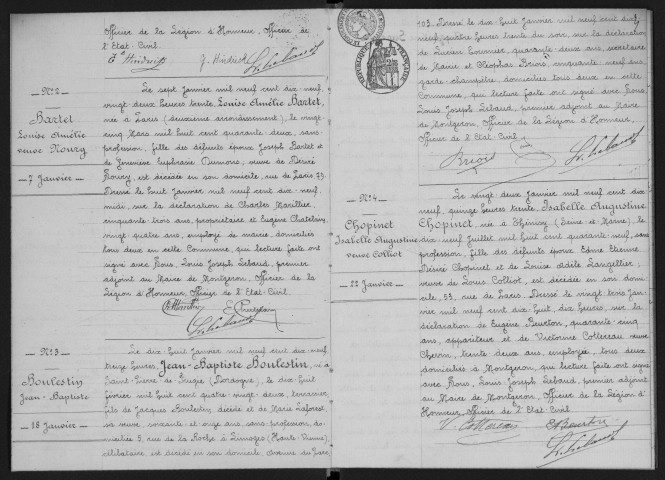 Officier de la Légion d'Honneur, Officier de
l'Etat-Civil.
N° 2
Bartet
Louise Amélie
veuve Noury
7 Janvier
Le sept Janvier mil neuf cent dix-neuf,
vingt-deux heures trente, Louise Amélie Bartet,
née à Paris (deuxième arrondissement), le vingt
cinq Mars mil huit cent quarante-deux, sans
profession, fille des défunts époux Joseph Bartet et
de Geneviève Euphrasie Dumons; veuve de Désiré
Noury, est décédée en son domicile, rue de Paris, 79.
Dressé le huit Janvier mil neuf cent dix-neuf,
midi, sur la déclaration de Charles Marillier,
cinquante-trois ans, propriétaire et Eugène
vingt-quatre ans, employé de mairie, domiciliés
tous deux en cette Commune, qui lecture faite ont
signé avec Nous, Louis Joseph Lebaud, premier
adjoint au Maire de Montgeron, Officier de la
Légion d'Honneur, Officier de l'Etat-Civil.
N° 3
Boulestin
Jean-Baptiste
18 Janvier
Le dix-huit Janvier mil neuf cent dix-neuf
treize heures, Jean-Baptiste Boulestin, né à
Saint-Pierre-de-Frugie (Dordogne), le dix-huit
février mil huit cent quatre-vingt-deux,
fils de Jacques Boulestin, décédé et de Marie Laforest,
sa veuve, soixante et onze ans, sans profession, do-
miciliée 5, rue de la Roche à Limoges (Haute-Vienne),
célibataire est décédé en son domicile, avenue du Parc
103. Dressé le dix-huit Janvier mil neuf cent dix
neuf, quatre heures trente du soir, sur la déclaration
de Lucien quarante-deux ans, secrétaire
de Mairie et Cléophas Briois, cinquante-neuf ans,
garde-champêtre, domiciliés tous deux en cette
Commune, qui lecture faite ont signé avec Nous,
Louis Joseph Lebaud, premier adjoint au Maire
de Montgeron, Officier de la Légion d'Honneur,
Officier de l'Etat-Civil.
Briois
N° 4
Chopinet
Isabelle Augustine
veuve Colliot
22 Janvier
Le vingt-deux Janvier mil neuf cent dix
neuf, quinze heures trente, Isabelle Augustine
Chopinet, née à (Seine-et-Marne), le
dix-neuf Juillet mil huit cent quarante-neuf, sans
profession, fille des défunts époux Edme Etienne
Désiré Chopinet et de Louise Adèle Langellier,
veuve de Louis Colliot, est décédée en son domi-
cile, 53, rue de Paris. Dressé le vingt-trois Jan-
vier mil neuf cent dix-huit, dix heures, sur la
déclaration de Eugène Beurton, quarante-cinq
ans, appariteur et de Victorine Cottereau veuve
Cheron, trente-deux ans, employée, tous deux
domiciliés à Montgeron, qui lecture faite ont signé
avec Nous, Louis Joseph Lebaud, premier adjoint
au Maire de Montgeron, Officier de la Légion d'
Honneur, Officier de l'Etat-Civil.
V. Cottereau Beurton